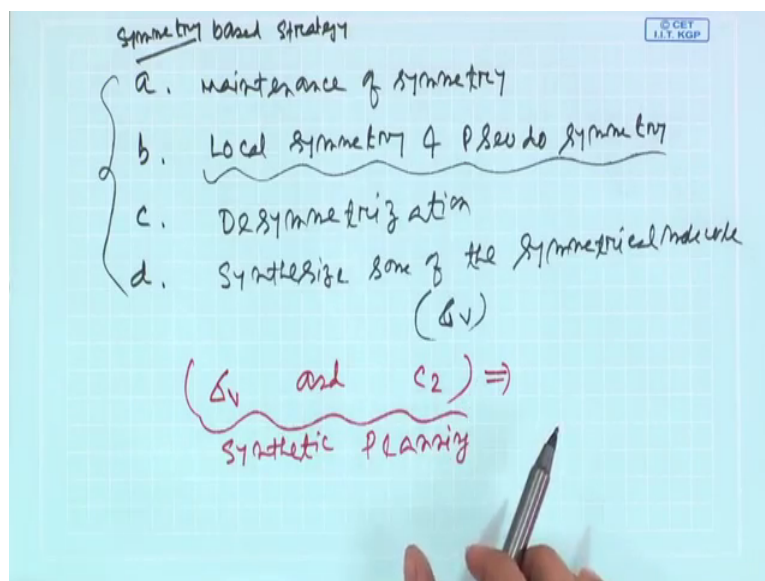 © CET
I.I.T. KGP
Symmetry based strategy
a. Maintenance of symmetry
b. Local symmetry & Pseudo symmetry
c. Desymmetrization
d. Synthesize some of the symmetrical molecule
(σv)
(σv and C2) ⇒
Synthetic Planning